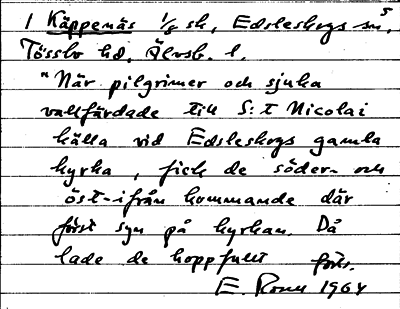 1 Käppenäs 1/8 sk, Edsleskogs sn,
5
Tössbo hd, Älvsb. l.
"När pilgrimer och sjuka
vallfärdade till S:t Nicolai
källa vid Edsleskogs gamla
kyrka, fick de söder- och
öst-ifrån kommande där
först syn på kyrkan. Då
lade de hoppfullt forts.
E. 1964